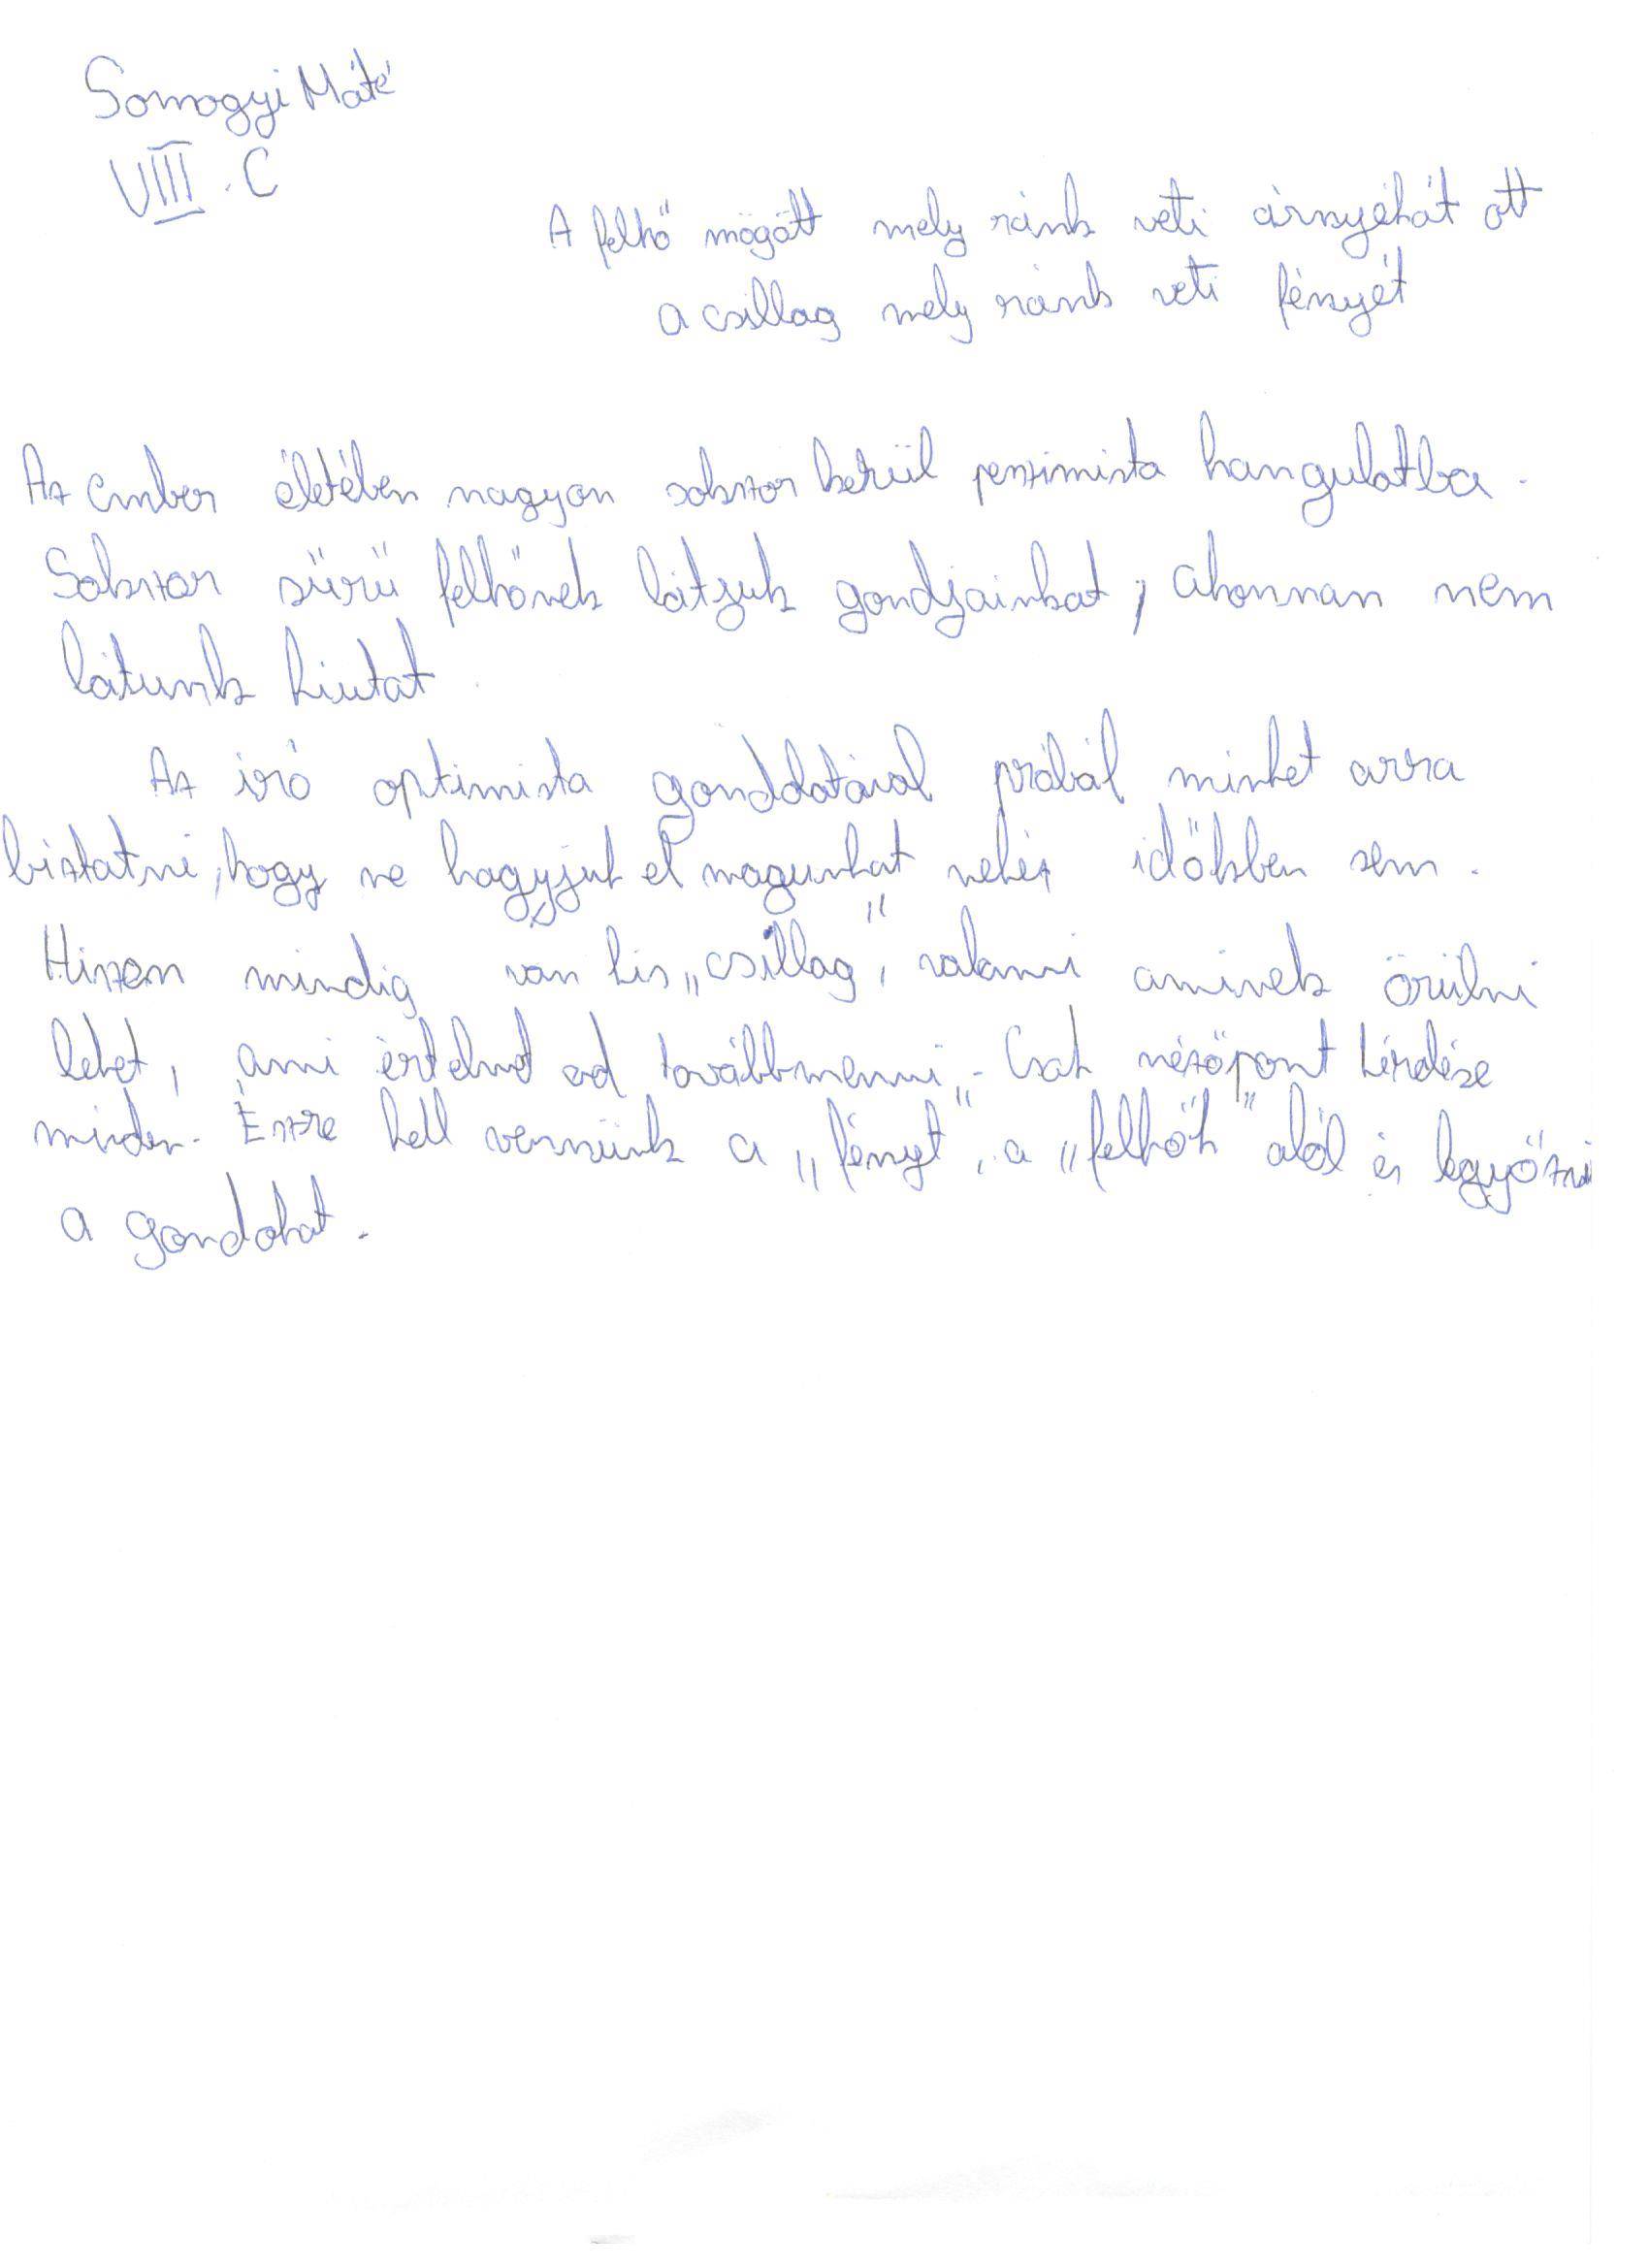 Somogyi Máté
VIII. C
A felhő mögött mely ránk veti árnyékát ott
a csillag mely ránk veti fényét
Az ember életében nagyon sokszor kerül pesszimista hangulatba.
Sokszor sűrű felhőnek látjuk gondjainkat, ahonnan nem
látunk kiutat.
Az író optimista próbál minket arra
bíztatni, hogy ne hagyjuk el magunkat nehéz időkben sem.
Hiszen mindig van kis „csillag", valami aminek örülni
lehet, ami értelmet ad továbbmenni. Csak nézőpont kérdése
minden. Észre kell vennünk a „fényt", a „felhők" alól és legyőzni
a gondokat.